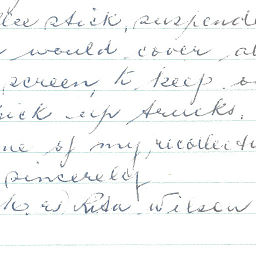 stick, suspende
would cover al
screen, to keep o
ick up trucks.
ne of my recollecti
sincerely
& Rita Wilson